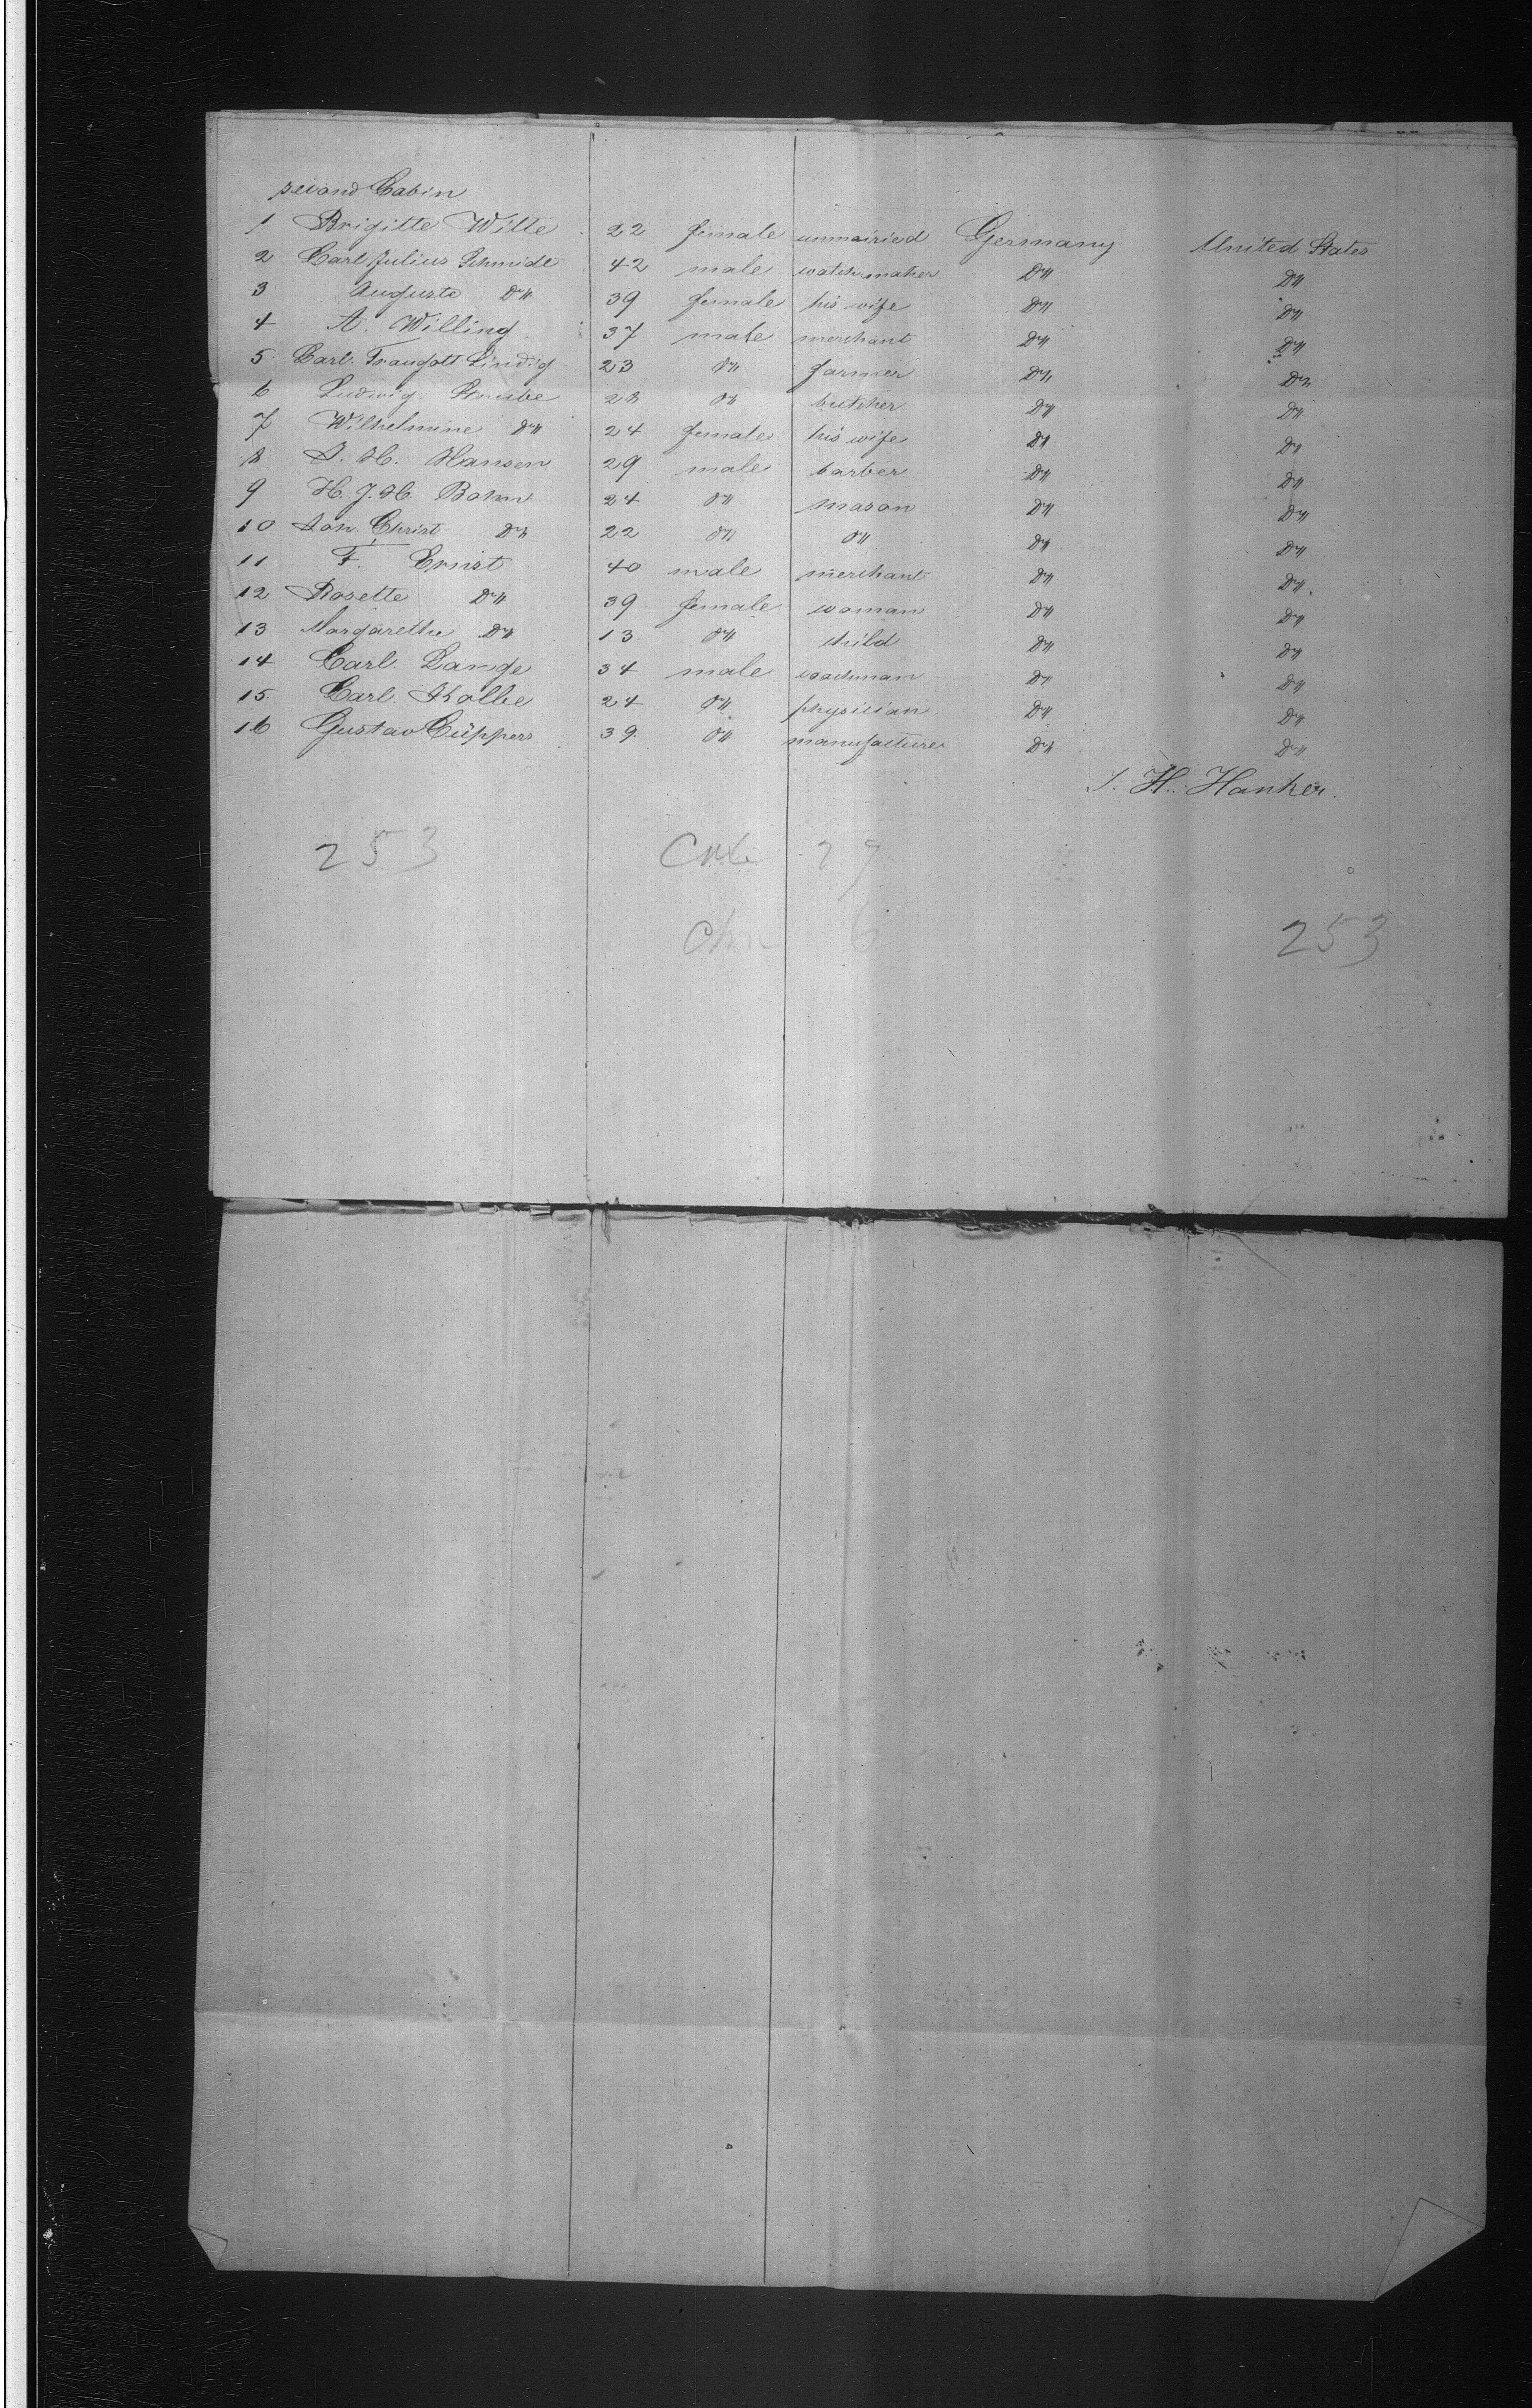 second Cabin
1 Brigitte Witte 22 female unmairied Germany United States
2 Carl Julius Schmidt 42 male watchmaker Do Do
3 Auguste Do 39 female his wife Do Do
4 A. Willing 37 male merchant Do Do
5. Carl. Traugott Lindig 23 do farmer Do Do
6 Ludwig 28 do butcher Do Do
7 Wilhelmine Do 24 female his wife Do Do
8 J. H. Hansen 29 male barber Do Do
9 H. J. H. 24 do mason Do Do
10 Joh. Christ Do 22 do do Do Do
11 F. Ernst 40 male merchant Do Do
12 Rosette Do 39 female woman Do Do
13 Margarethe Do 13 do child Do Do
14 Carl. Lange 34 male coachman Do Do
15. Carl. Kolbe 24 do physician Do Do
16 Gustav Cüppers 39. do manufacturer Do Do
H. Hanker.
253 27
6 253